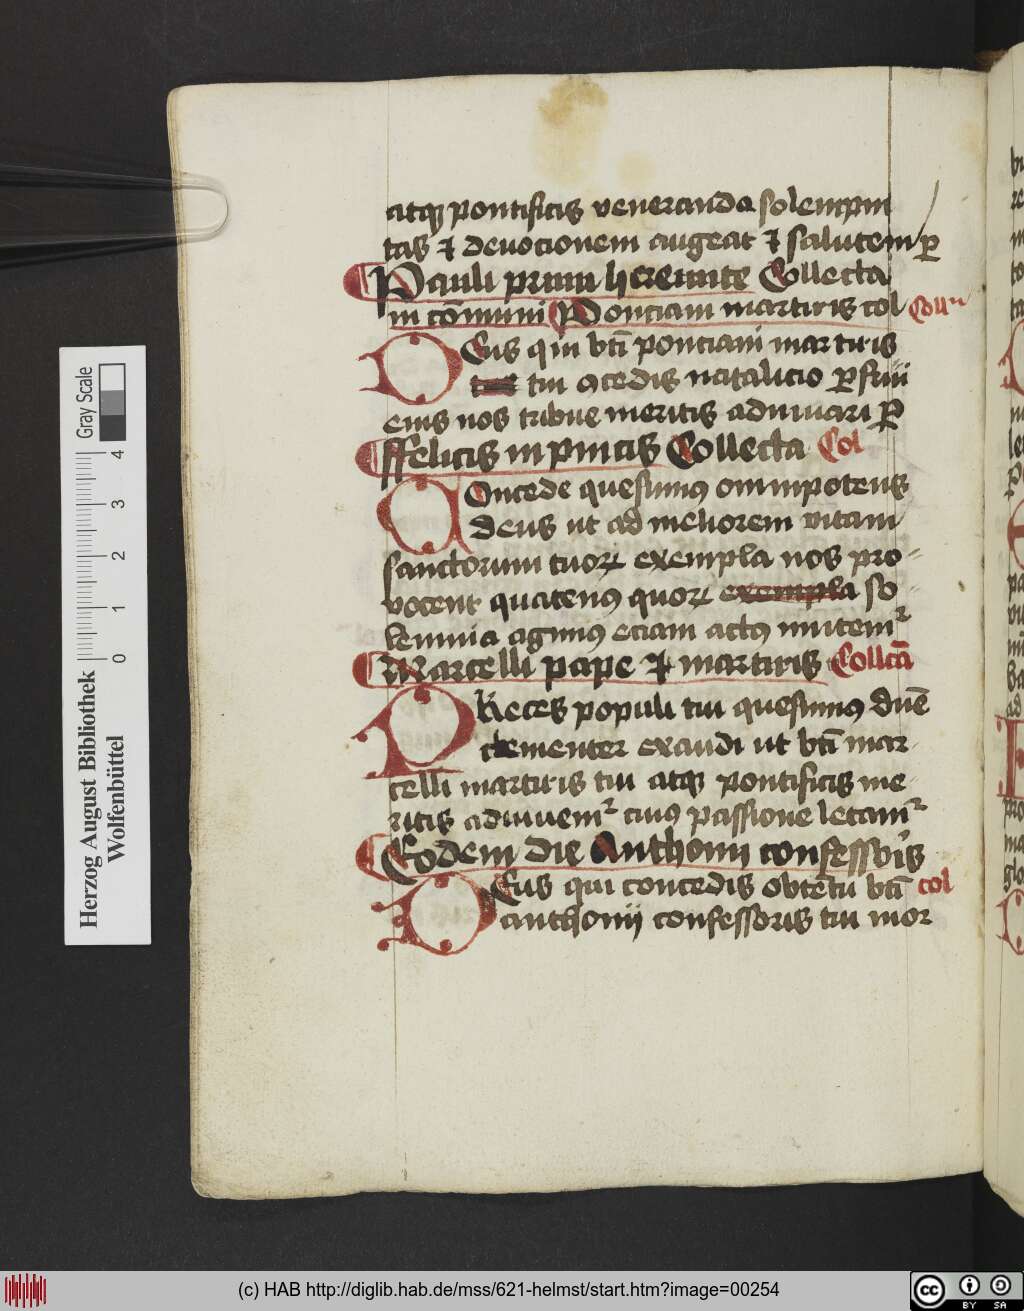 atqꝫ pontificis veneranda solempni
tas ⁊ deuocionem augeat ⁊ salutem ꝑ
Pauli primi heremite Collecta
in cōmuni Ponciani martiris col Coll
DEus qui bt̄i ponciani martiris
tui ꝯcedis natalicio ꝑfrui
eius nos tribue meritis adiuuari ꝑ
ffelicis in pincis Collecta Col
COncede quesumus omnipotens
deus ut ad meliorem vitam
sanctorum tuoꝝ exempla nos pro-
vocent quatenꝰ quoꝝ exempla so-
lemnia agimꝰ eciam actꝰ imitem᷑
Marcelli pape ⁊ martiris Collcā
PReces populi tui quesumꝰ dn̄e
clementer exaudi ut bt̄i mar-
celli martiris tui atqꝫ pontificis me-
ritis adiuuem᷑ cuiꝰ passione letam᷑
Eodem die Anthonij confessoris
DEus qui concedis obtētu bt̄i col
anthonij confessoris tui mor
Gray Scale
0 1 2 3 4
Herzog August Bibliothek
Wolfenbüttel
(c) HAB http://diglib.hab.de/mss/621-helmst/start.htm?image=00254
cc BY SA